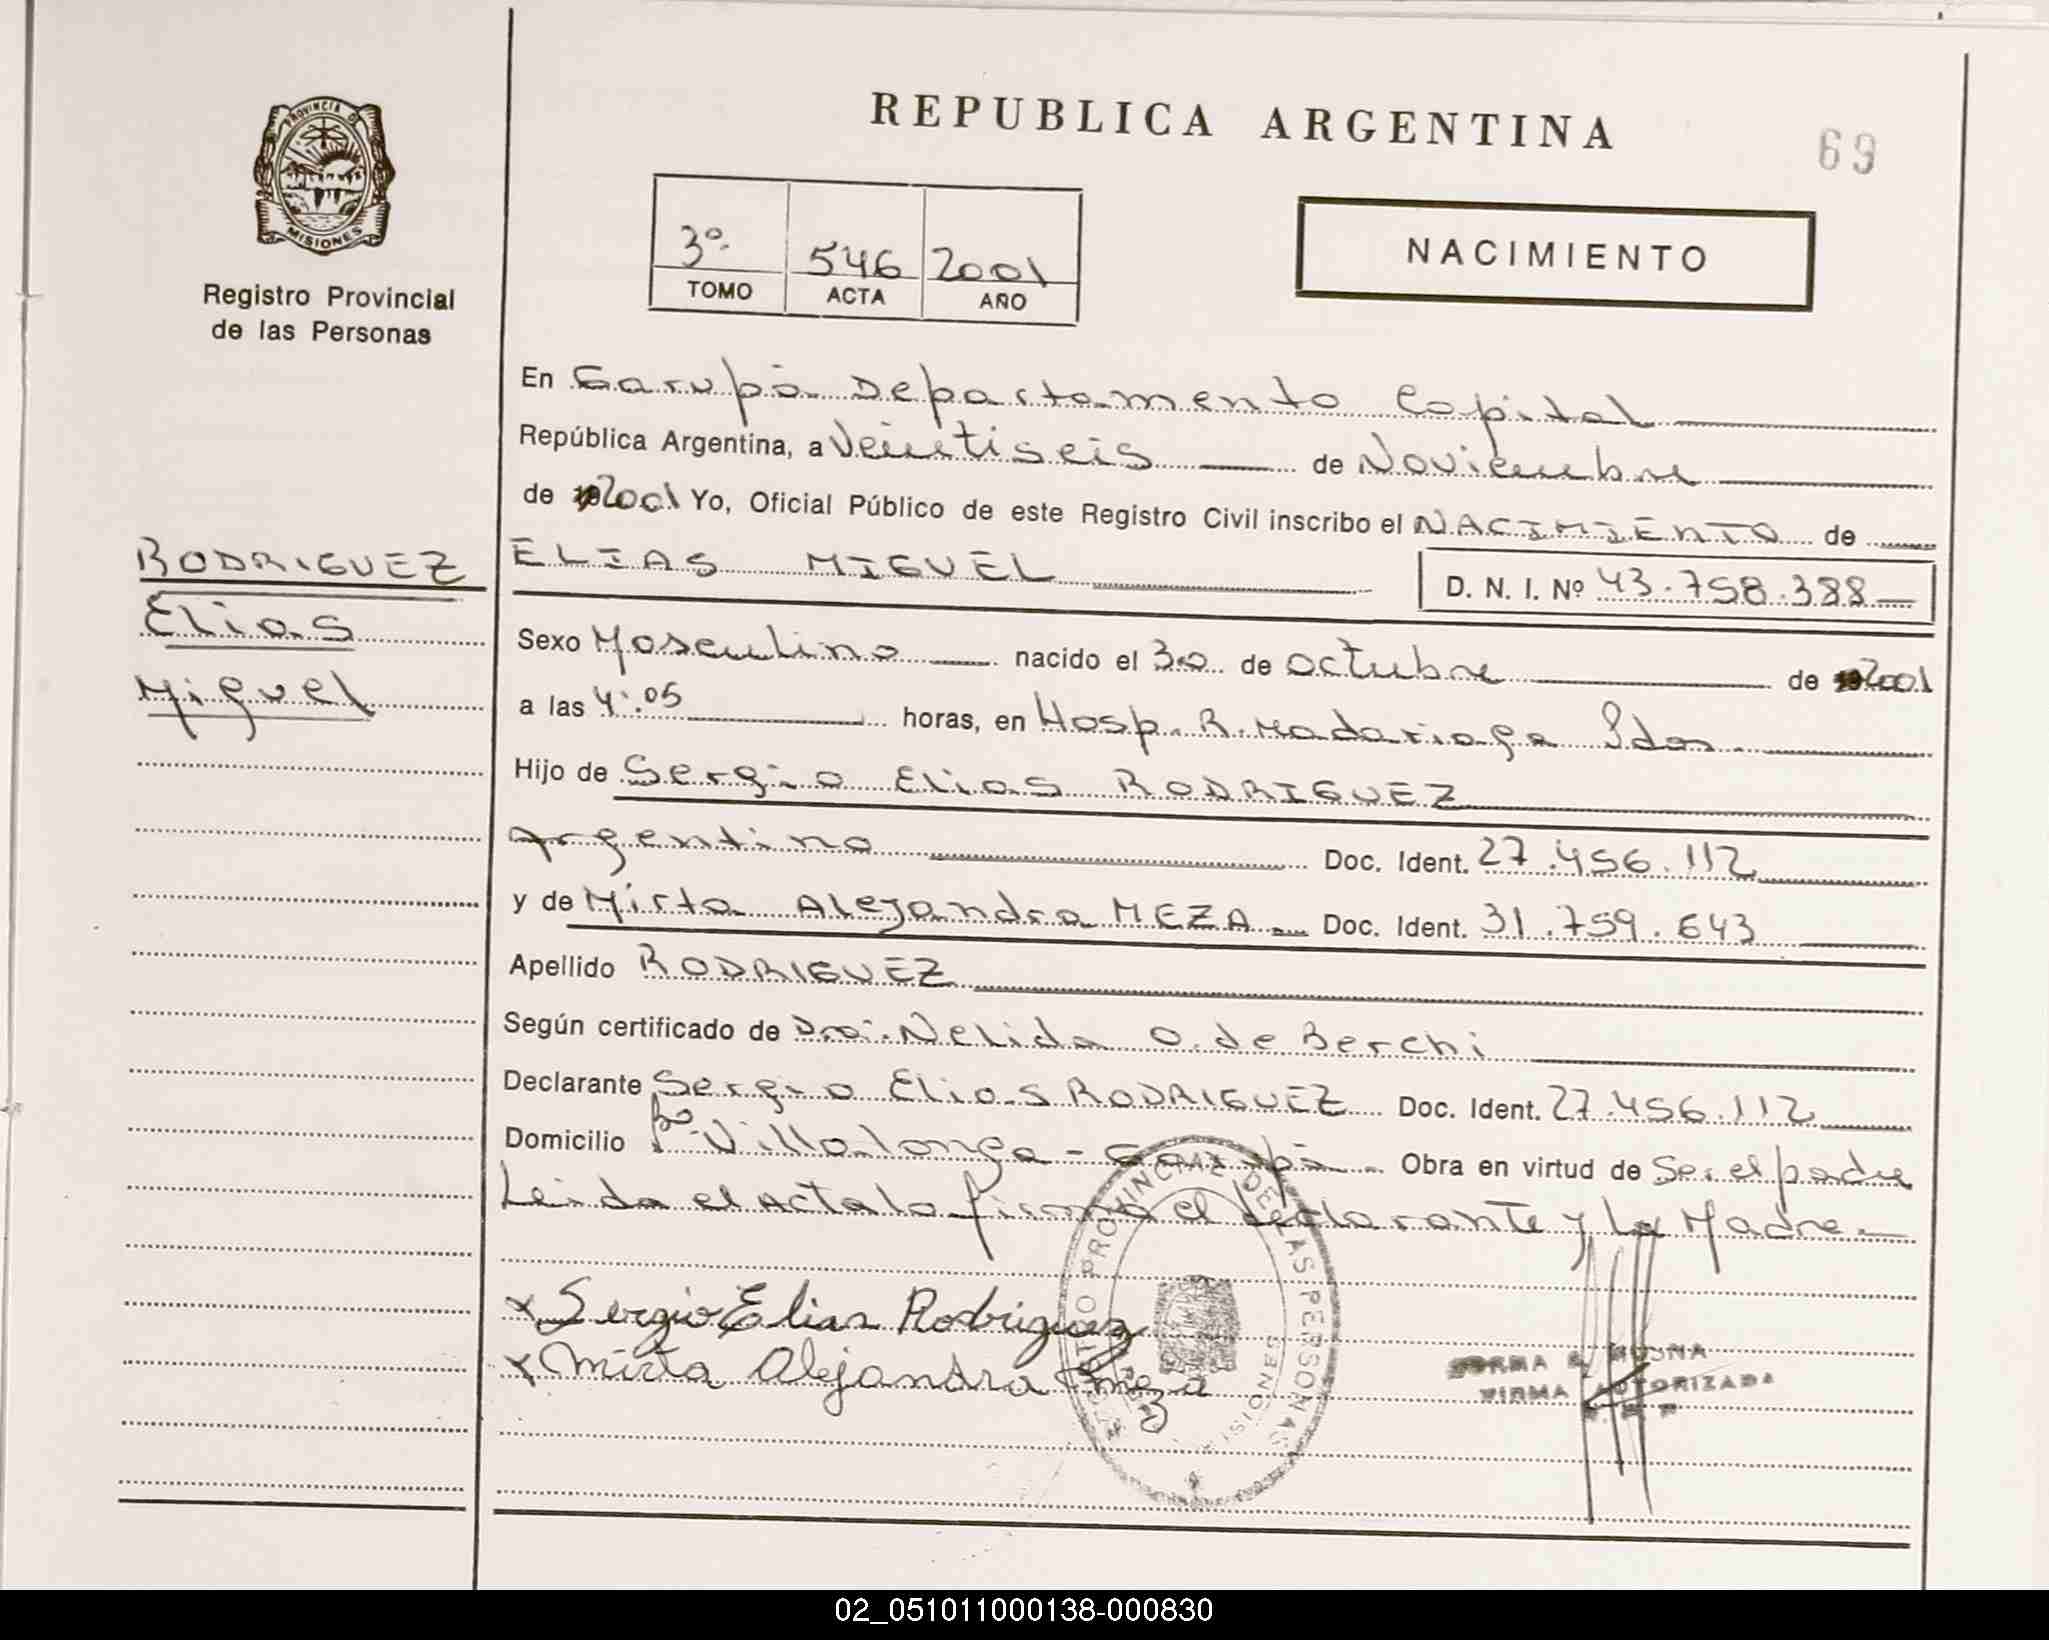 PROVINCIA DE
MISIONES
Registro Provincial
de las Personas
REPUBLICA ARGENTINA
69
3º 546 2001
TOMO ACTA AÑO
NACIMIENTO
En Garupá Departamento Capital
República Argentina, a Veintiseis de Noviembre
de 2001 Yo, Oficial Público de este Registro Civil inscribo el NACIMIENTO de
RODRIGUEZ
Elias
Miguel
ELIAS MIGUEL D. N. I. Nº 43.758.388
Sexo Masculino nacido el 30 de octubre de 2001
a las 4:05 horas, en Hosp. R. Madariaga Pdas.
Hijo de Sergio Elias RODRIGUEZ
argentino Doc. Ident. 27.456.112
y de Mirta Alejandra MEZA Doc. Ident. 31.759.643
Apellido RODRIGUEZ
Según certificado de Dra. Nelida O. de Berchi
Declarante Sergio Elias RODRIGUEZ Doc. Ident. 27.456.112
Domicilio Bº Villalonga - Garupá Obra en virtud de Ser el padre
Leida el Acta la firma el declarante y La Madre
x Sergio Elias Rodriguez
x Mirta Alejandra Meza
REGISTRO PROVINCIAL DE LAS PERSONAS
MISIONES
FIRMA AUTORIZADA
02_051011000138-000830